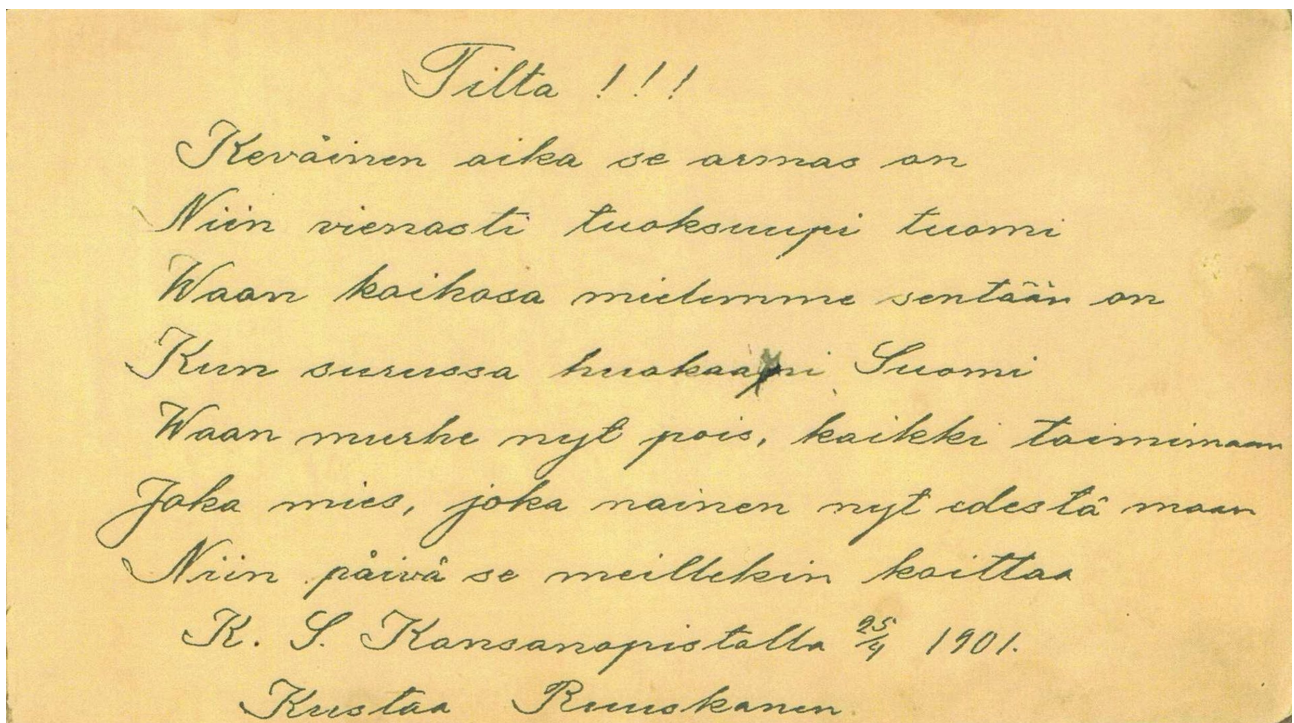 Tilta !!!
Keväinen aika se armas on
Niin vienasti tuoksuupi tuomi
Waan kaihosa mielemme sentään on
Kun surussa huokaapi Suomi
Waan murhe nyt pois, kaikki toimimaan
Joka mies, joka nainen nyt edestä maan
Niin päivä se meillekin koittaa
K. S. Kansanopistolla 25/4 1901.
Kustaa Ruuskanen.